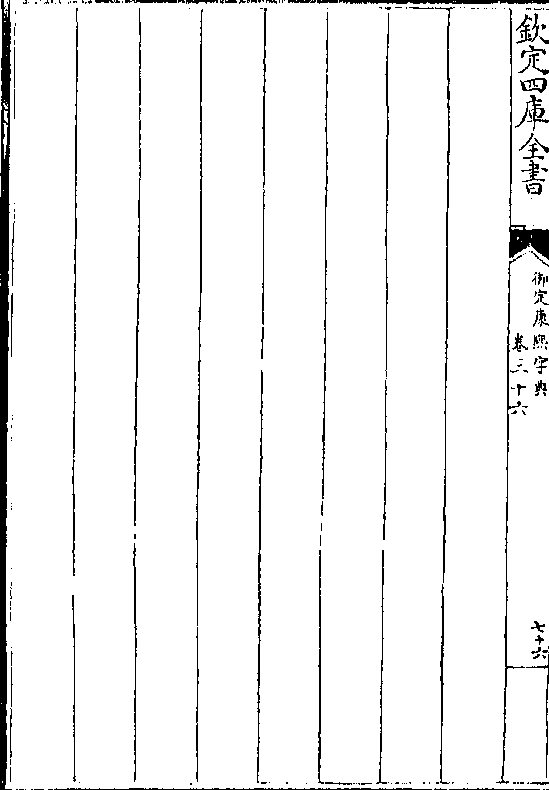 欽定四庫全書
御定康熙字典
卷三十六
七十六